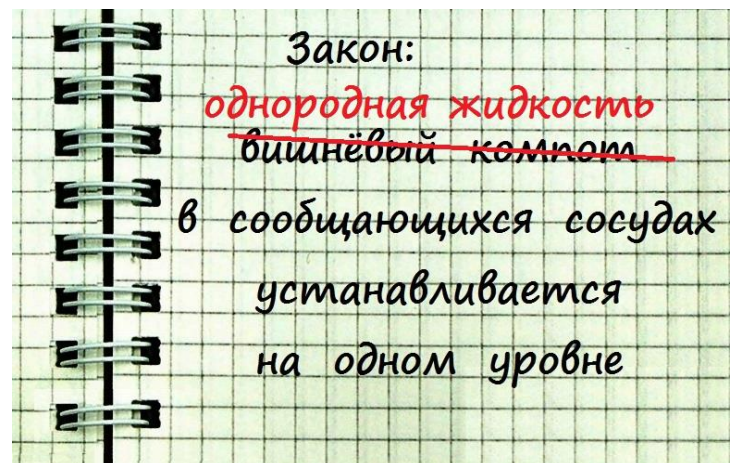 Закон:
однородная жидкость
вишнёвый компот
в сообщающихся сосудах
устанавливается
на одном уровне